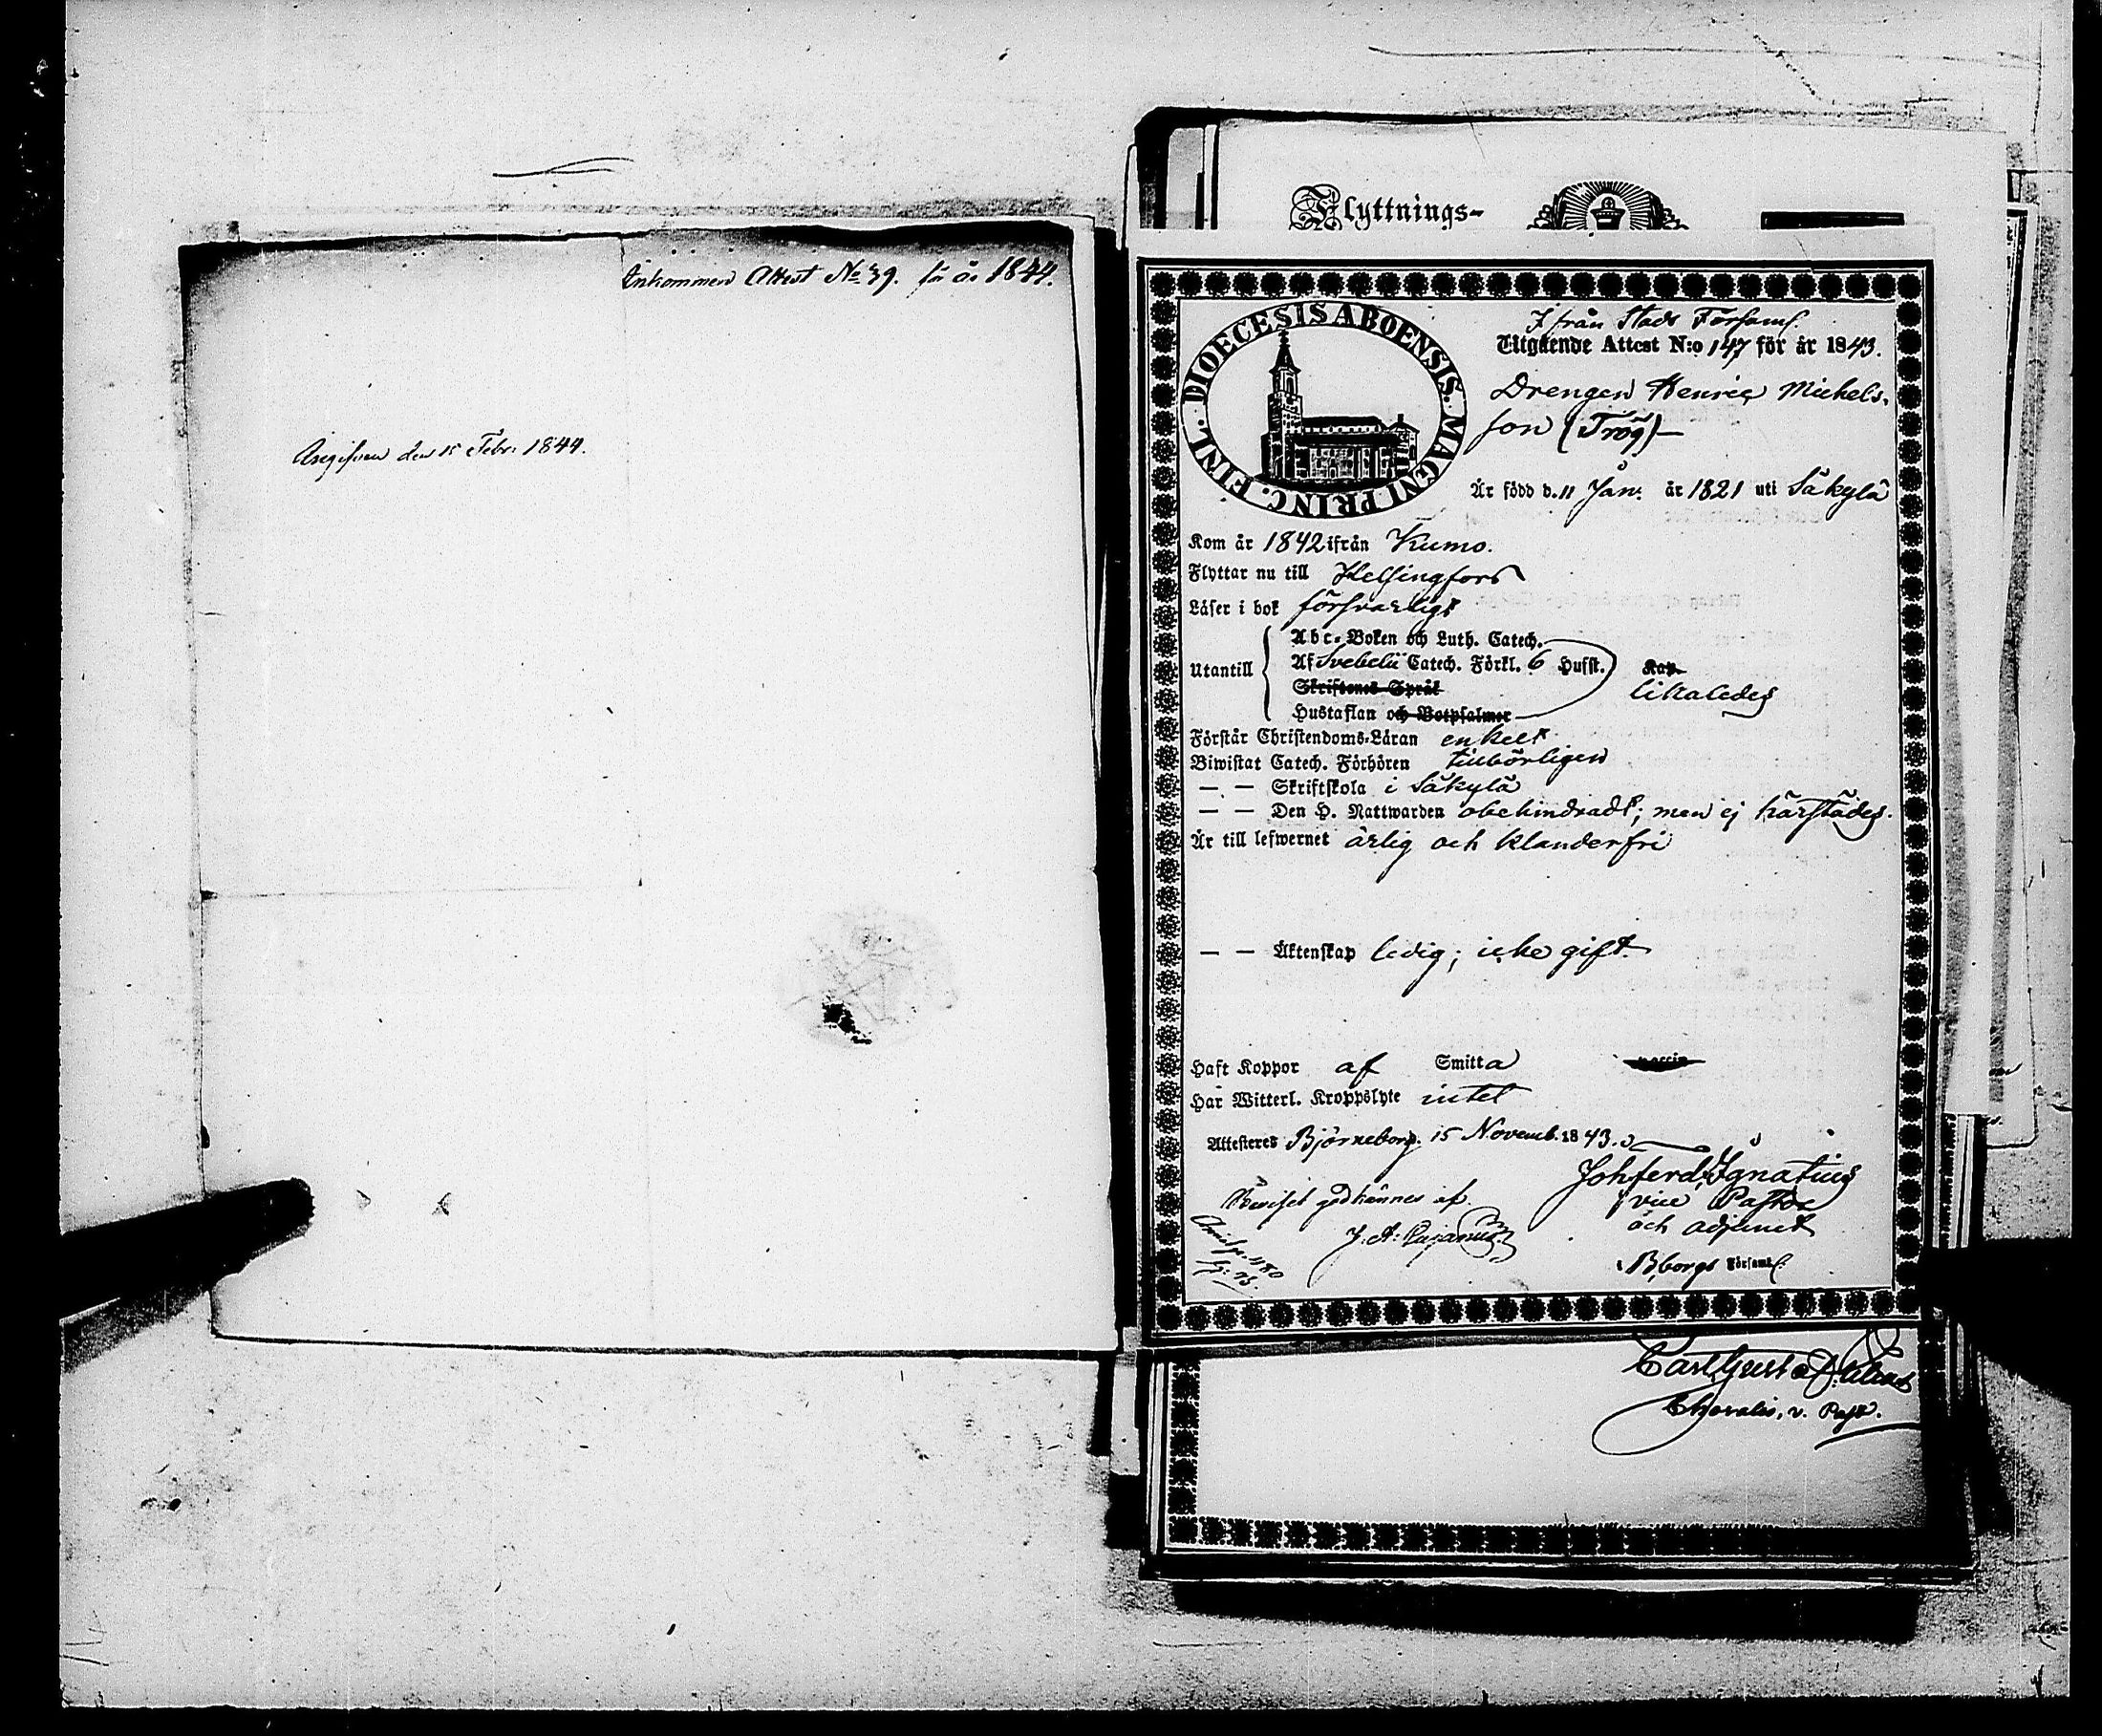 Ankommen Attest No 39. för år 1844.
Angifven den 15 Febr. 1844.
Flyttnings-
DIOECESIS ABOENSIS. MAGNI PRINC. FINL.
Ifrån Stads Församl.
Utgående Attest N:o 147 för år 1843.
Drengen Henric Michels-
son (Trög)
Är född d. 11 Jan. år 1821 uti Säkylä
Kom år 1842 ifrån Kumo.
Flyttar nu till Helsingfors
Läser i bok försvarligt
Abc-Boken och Luth. Catech.
Utantill Af Svebelii Catech. Förkl. 6 Hufst. Kap.
Skriftenes Språk likaledes
Hustaflan och Botpsalmer
Förstår Christendoms-Läran enkelt
Biwistat Catech. Förhören tillbörligen
— — Skriftskola i Säkylä
— — Den H. Nattwarden obehindradt; men ej härstädes.
Är till lefwernet ärlig och klanderfri
— — Äktenskap ledig; icke gift.
Haft Koppor af Smitta
Har Witterl. Kroppslyte intet
Attesteres Björneborg. 15 Novemb. 1843.
Joh ferd. Ignatius
vice Pastor
och adjunct
Bborgs Församl.
Beviset godkännes af.
J. A.
480
v. Past.